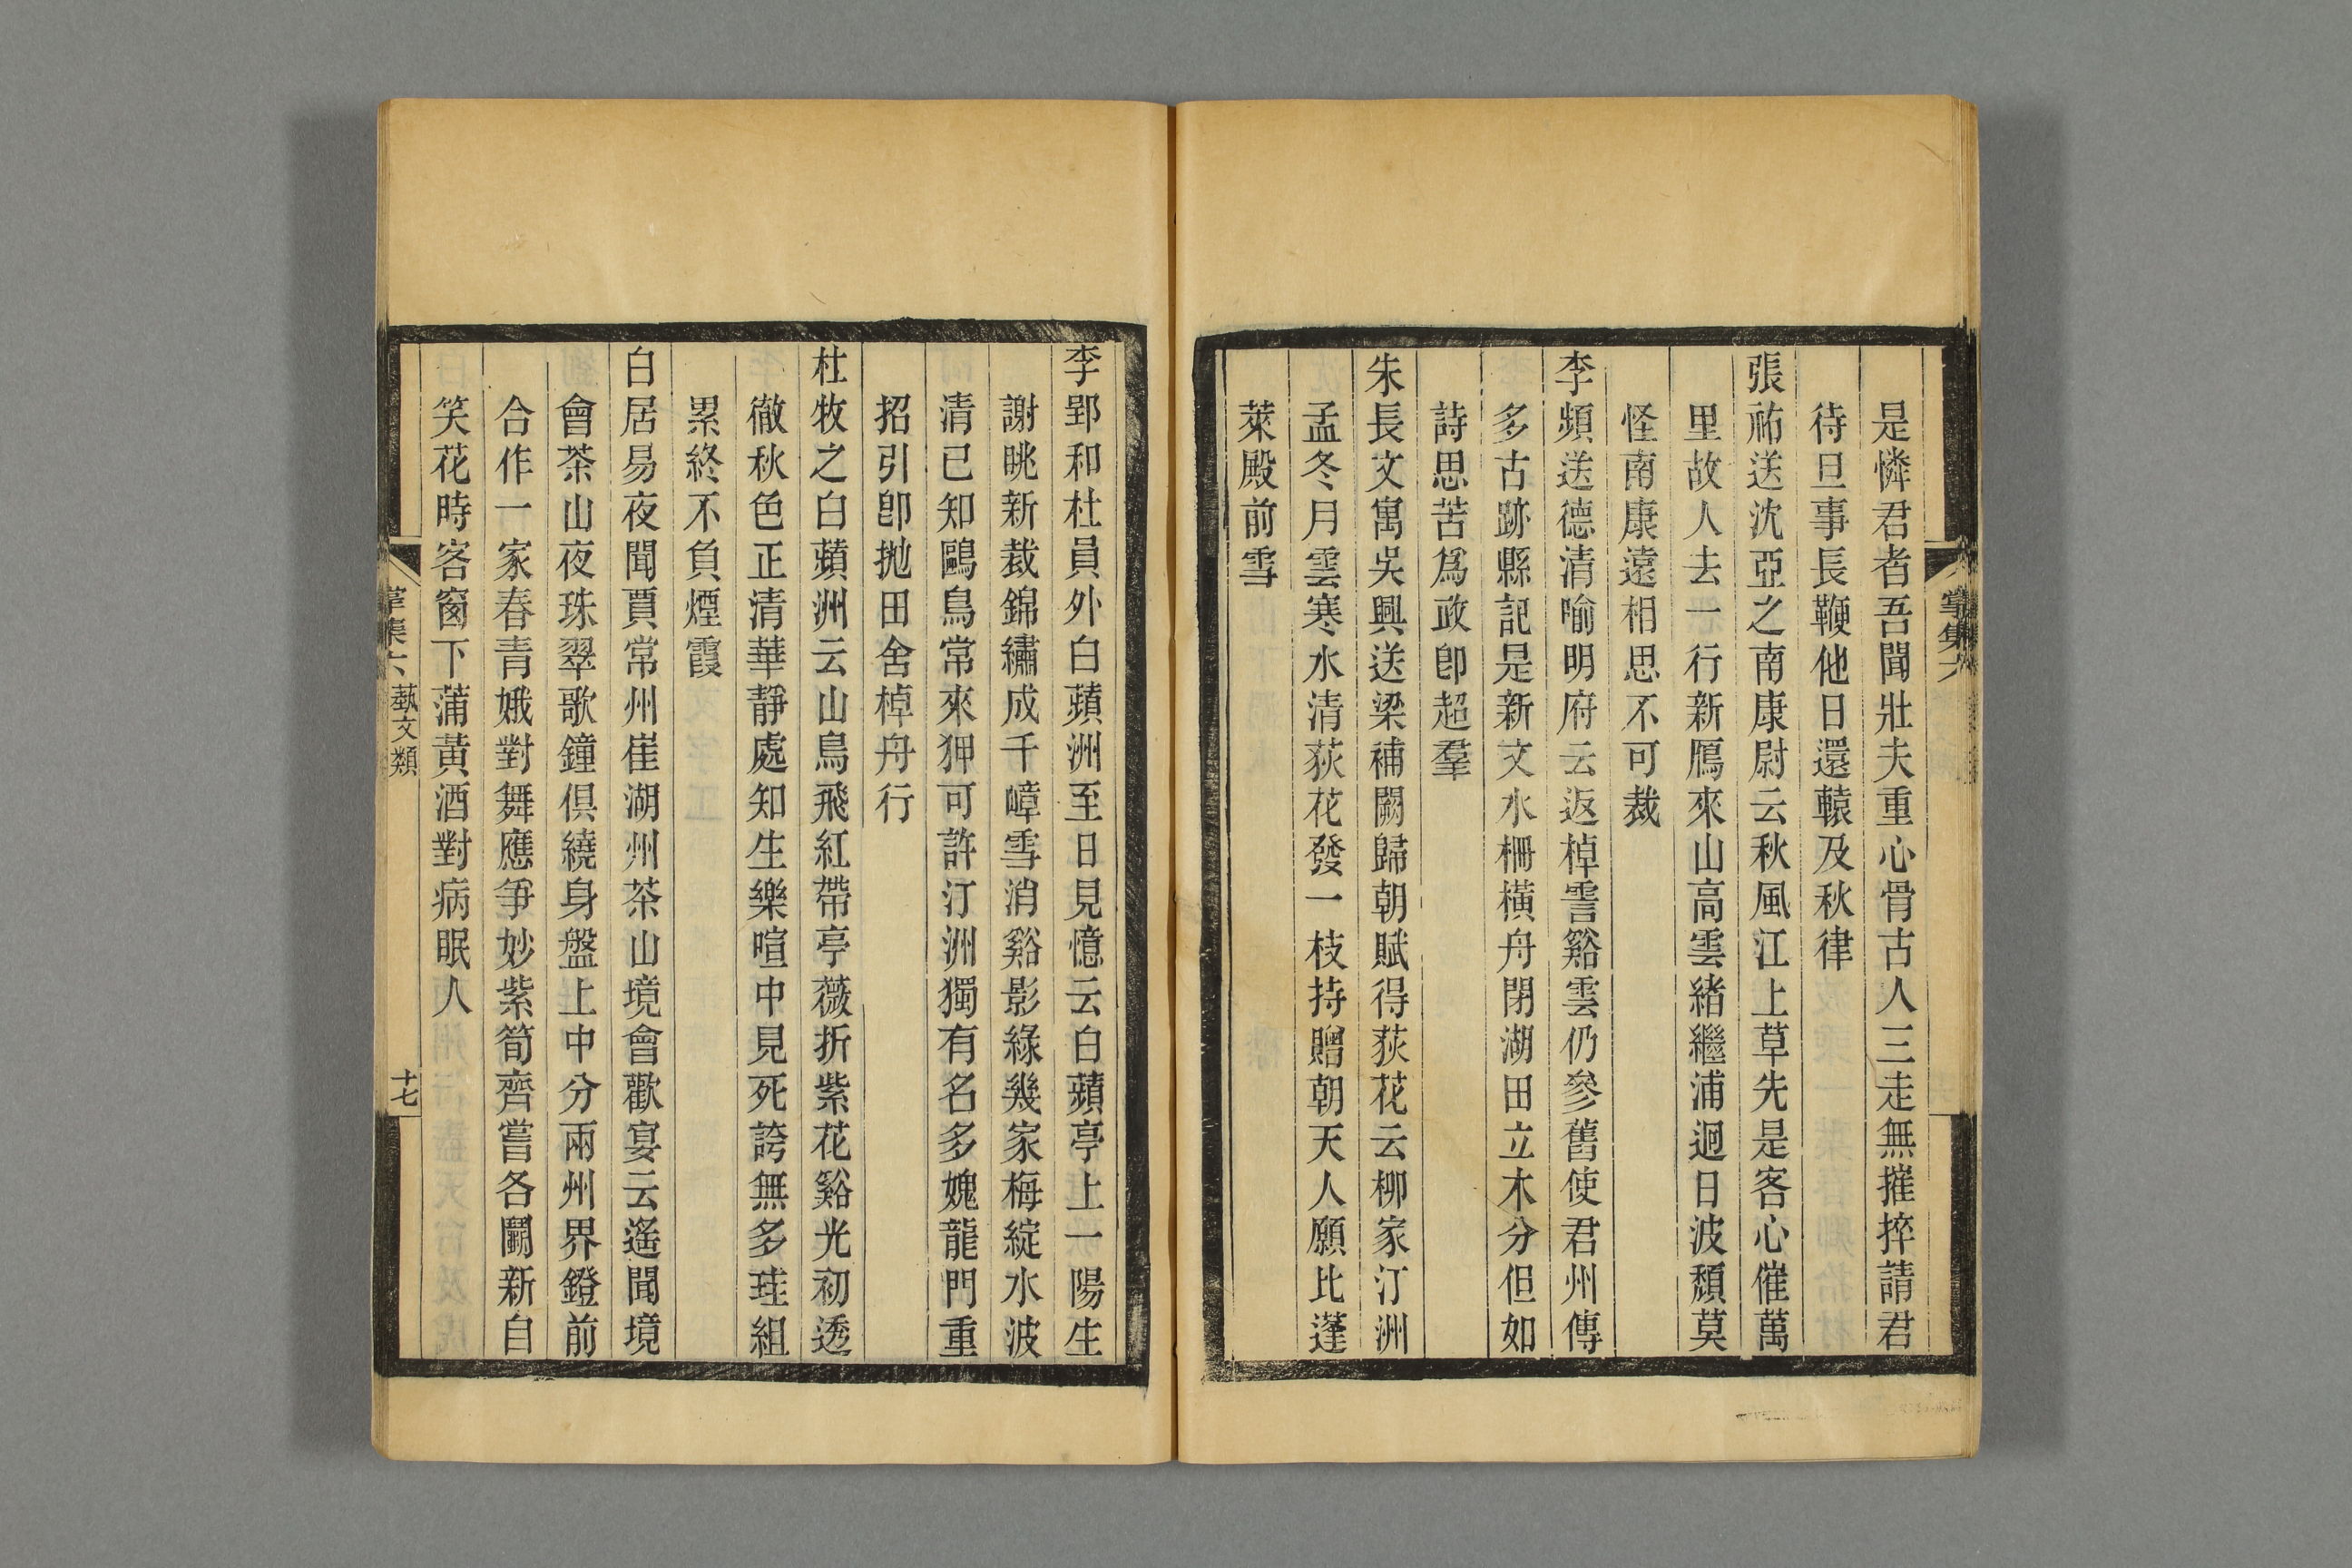 掌集六
是憐君者吾聞壯夫重心骨古人三走無摧捽請君
待旦事長鞭他日還轅及秋律
張祐送沈亞之南康尉云秋風江上草先是客心催萬
里故人去一行新鴈來山高雲緒繼浦迥日波頹莫
怪南康遠相思不可裁
李頻送德清喻明府云返棹霅谿雲仍參舊使君州傳
多古跡縣記是新文水柵橫舟閉湖田立木分但如
詩思苦爲政卽超羣
朱長文寓吳興送梁補闕歸朝賦得荻花云柳家汀洲
孟冬月雲寒水清荻花發一枝持贈朝天人願比蓬
萊殿前雪
李郢和杜員外白蘋洲至日見憶云白蘋亭上一陽生
謝眺新裁錦繡成千嶂雪消谿影綠幾家梅綻水波
清已知鷗鳥常來狎可許汀洲獨有名多媿龍門重
招引卽拋田舍棹舟行
杜牧之白蘋洲云山鳥飛紅帶亭薇折紫花谿光初透
徹秋色正清華靜處知生樂喧中見死誇無多珪組
累終不負煙霞
白居易夜聞賈常州崔湖州茶山境會歡宴云遙聞境
會茶山夜珠翠歌鐘俱繞身盤上中分兩州界鐙前
合作一家春青娥對舞應爭妙紫筍齊嘗各鬬新自
笑花時客窗下蒲黃酒對病眠人
掌集六 蓺文類 十七